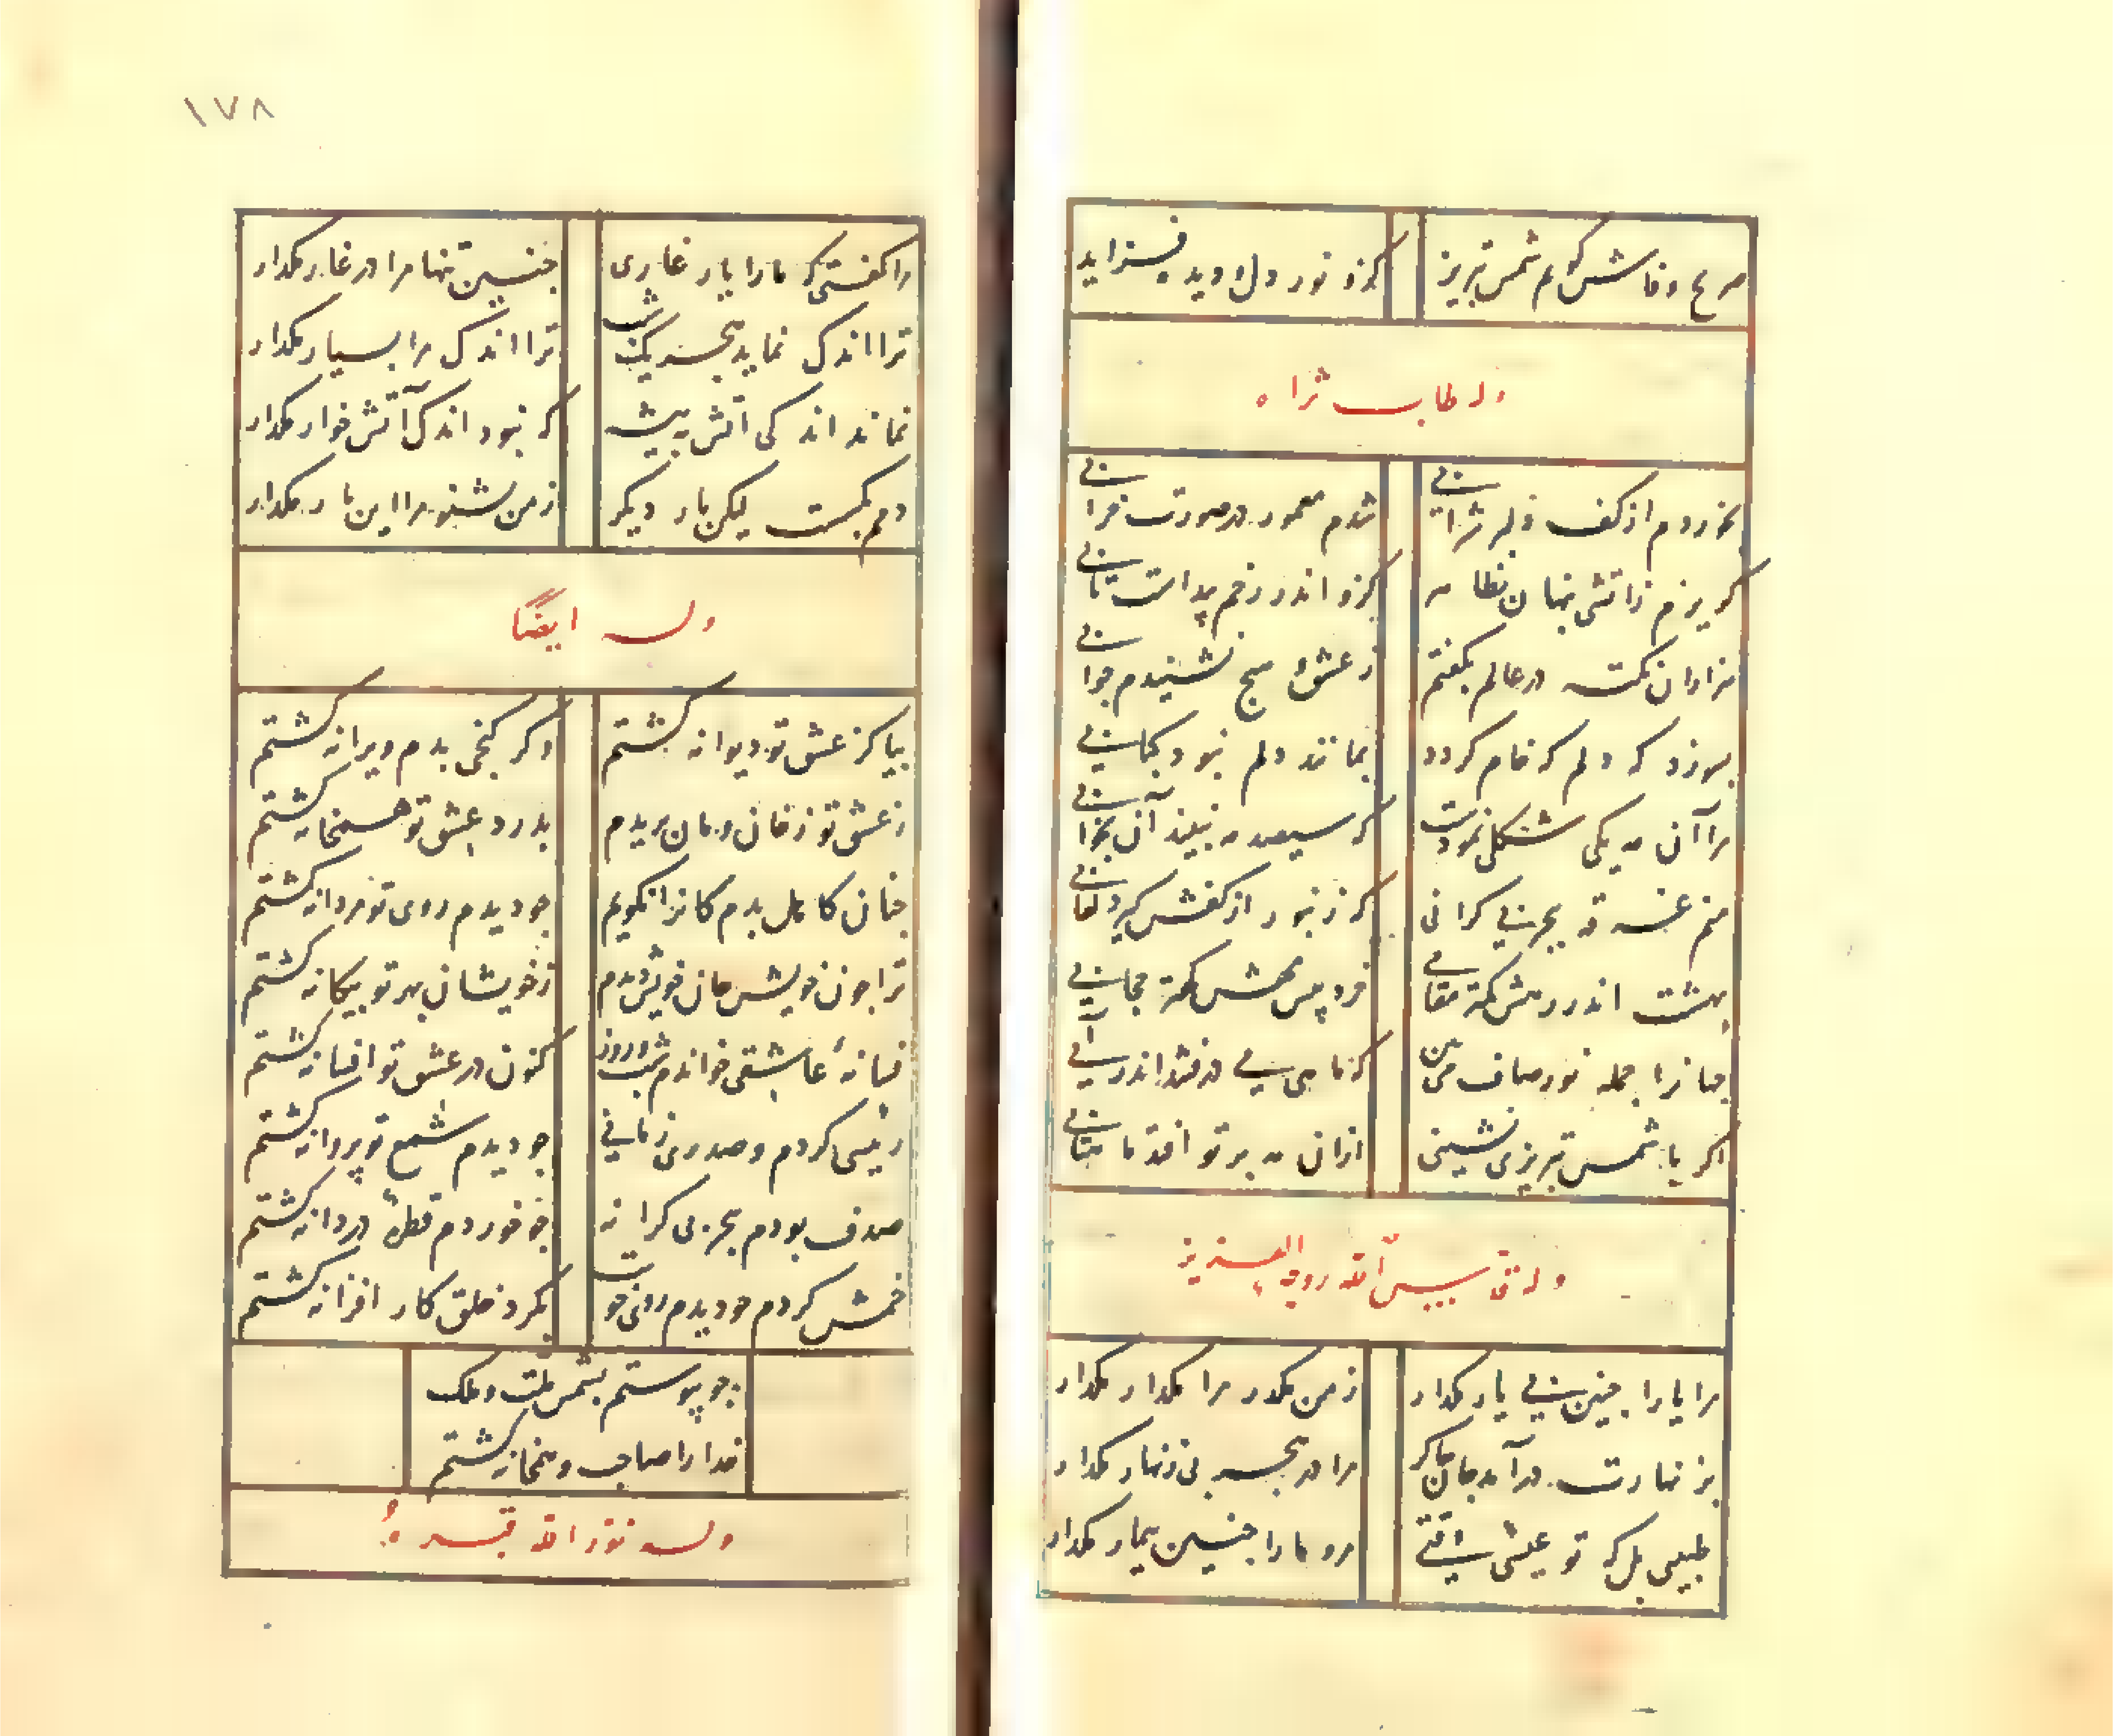 صریح و فاش گویم شمس تبریز
کزو نور دل و دیده فزاید
وله طاب ثراه
بخوردم از کف دلبر شرابی
شدم معمور در صورت خرابی
گریزم ز آتشی پنهان نظامه
کزو اندر رخم پیداست تابی
هزاران نکته در عالم بگفتم
ز عشق هیچ نشنیدم جوابی
بسوزد گه دلم گه خام گردد
بمانند دلم نبود کبابی
مرا آن مه یکی شکلی نمودست
که سیصد مه نبیند آن بخوابی
منم غرقه به بحر بی کرانی
که زنبور از کفش گیرد لعابی
بهشت اندر رهش کمتر مقامی
خرد پیش مهش کمتر حجابی
جهانرا جمله نور صاف می‌بین
که ماهی می درفشد اندر آبی
اگر با شمس تبریزی نشینی
ازان مه بر تو افتد ماهتابی
وله قدس الله روحه العزیز
مرا یارا چنین بی یار مگذار
ز من مگذر مرا مگذار مگذار
بزنهارت درآمد جان چاکر
مرا در هجر بی زنهار مگذار
طبیبی بلکه تو عیسی وقتی
مرو مارا چنین بیمار مگذار
۱۷۸
مرا گفتی که مارا یار غاری
چنین تنها مرا در غار مگذار
ترا اندک نماید هجر یک شب
ترا اندک مرا بسیار مگذار
نماند اندکی آتش به بیشه
که نبود اندک آتش خوار مگذار
دمم بگسست لیکن بار دیگر
ز من بشنو مرا این بار مگذار
وله ایضاً
بیا کز عشق تو دیوانه گشتم
وگر گنجی بدم ویرانه گشتم
ز عشق تو ز خان و مان بریدم
بدرد عشق تو همخانه گشتم
چنان کاهل بدم کانرا نگویم
چو دیدم روی تو مردانه گشتم
ترا چون خویش جان خویش دیدم
ز خویشان بهر تو بیگانه گشتم
فسانهٔ عاشقی خواندم شب و روز
کنون در عشق تو افسانه گشتم
رئیسی کردم و صدری زمانی
چو دیدم شمع تو پروانه گشتم
صدف بودم ببحر بی کرانه
چو خوردم قطرهٔ دردانه گشتم
خمش کردم چو دیدم روی خوبت
بگرد خلق کار افزانه گشتم
چو پیوستم بشمس ملت و ملک
خدا را صاحب و همخانه گشتم
وله نور الله قبره